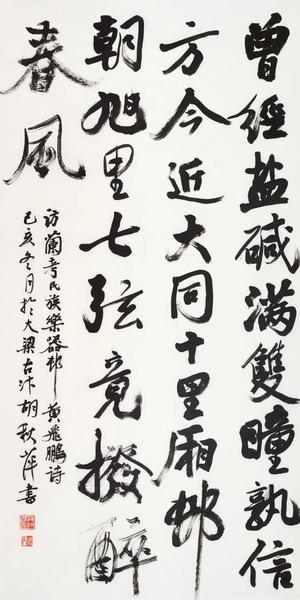 曾經盐碱满雙瞳孰信
方今近大同十里厢邨
朝旭里七弦竟撥醉
春風
访蘭考民族樂器邨 黄飛鵬诗
己亥冬月於大梁古汴胡秋萍書